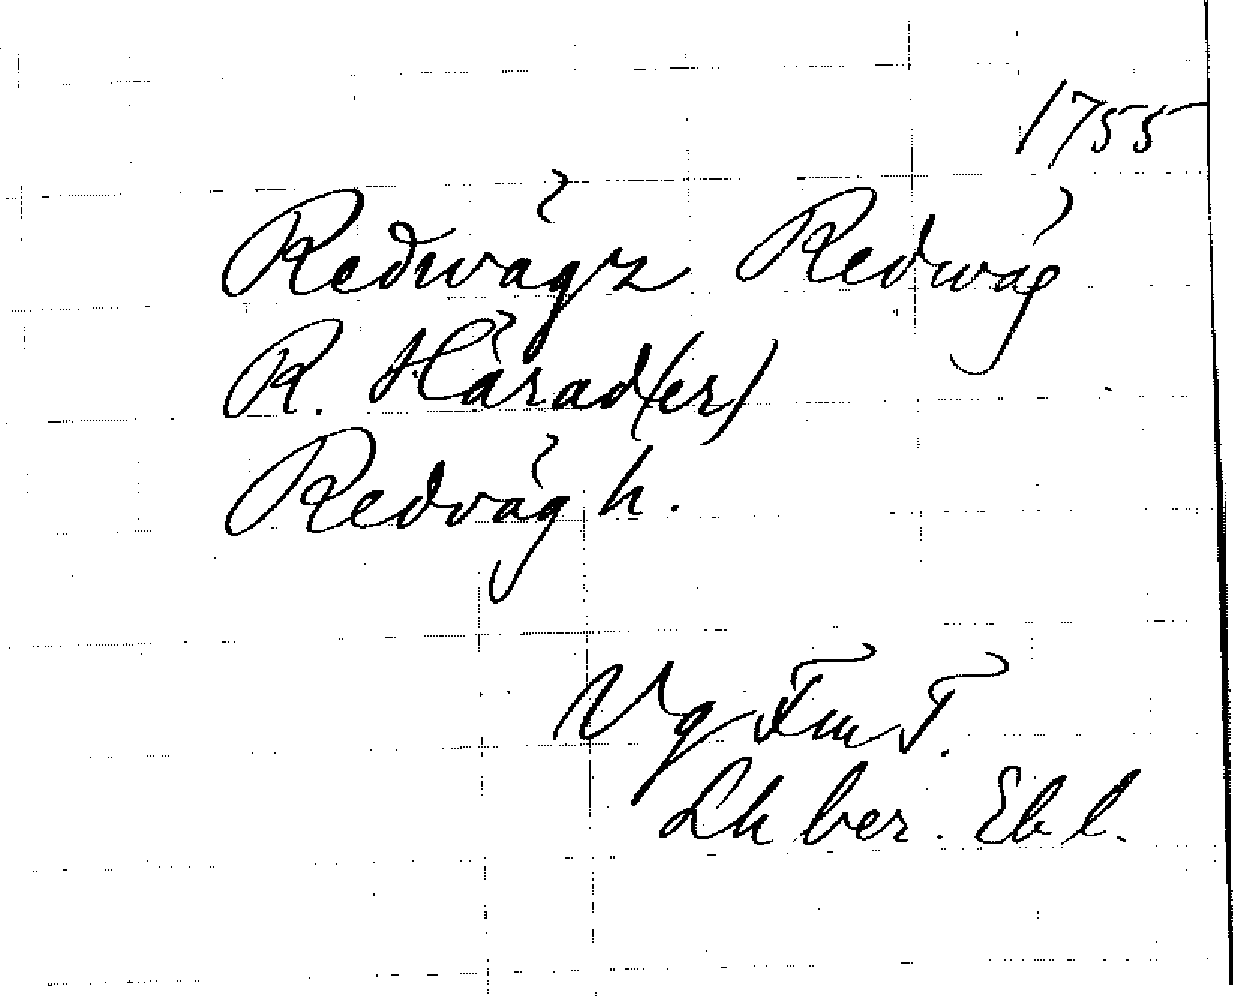 1755
Redwägz Redwäg
R. Härad(er)
Redväg h.
Vg FmT.
Lh ber. Eb l.